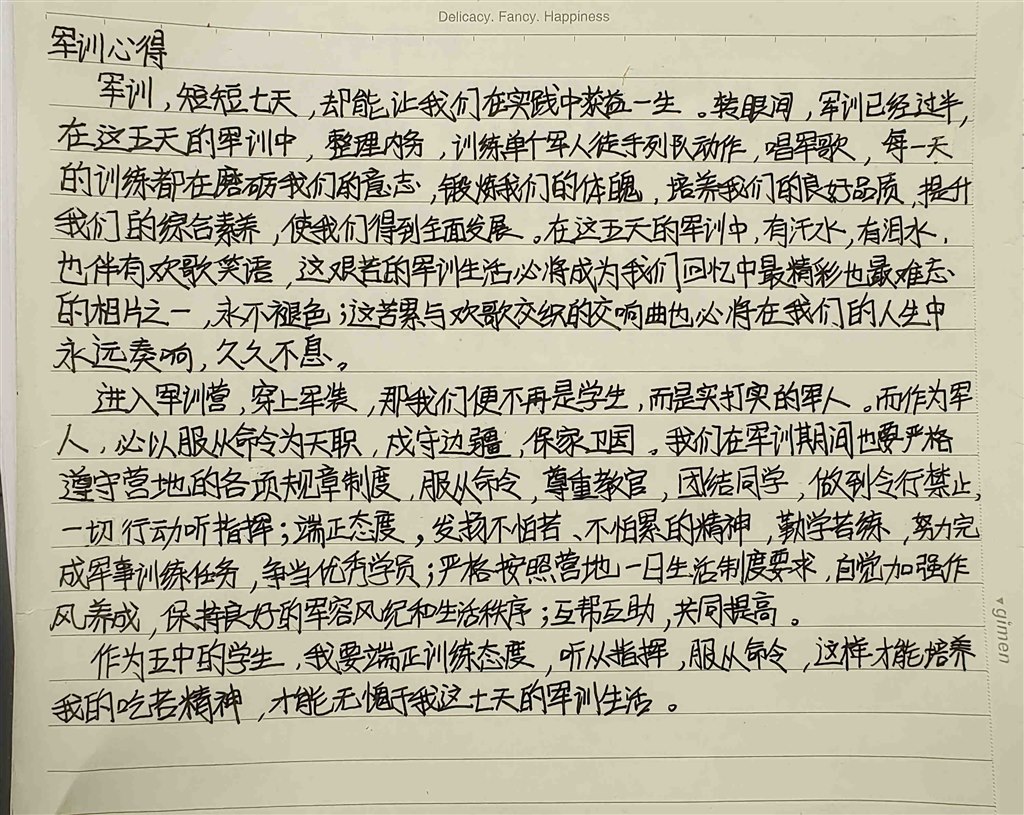 Delicacy. Fancy. Happiness
军训心得
军训，短短七天，却能让我们在实践中获益一生。转眼间，军训已经过半，
在这五天的军训中，整理内务，训练单个军人徒手列队动作，唱军歌，每一天
的训练都在磨砺我们的意志，锻炼我们的体魄，培养我们的良好品质，提升
我们的综合素养，使我们得到全面发展。在这五天的军训中，有汗水，有泪水，
也伴有欢歌笑语，这艰苦的军训生活必将成为我们回忆中最精彩也最难忘
的相片之一，永不褪色；这苦累与欢歌交织的交响曲也必将在我们的人生中
永远奏响，久久不息。
进入军训营，穿上军装，那我们便不再是学生，而是实打实的军人。而作为军
人，必以服从命令为天职，戍守边疆，保家卫国。我们在军训期间也要严格
遵守营地的各项规章制度，服从命令，尊重教官，团结同学，做到令行禁止，
一切行动听指挥；端正态度，发扬不怕苦、不怕累的精神，勤学苦练，努力完
成军事训练任务，争当优秀学员；严格按照营地一日生活制度要求，自觉加强作
风养成，保持良好的军容风纪和生活秩序；互帮互助，共同提高。
作为五中的学生，我要端正训练态度，听从指挥，服从命令，这样才能培养
我的吃苦精神，才能无愧于我这七天的军训生活。
gimen